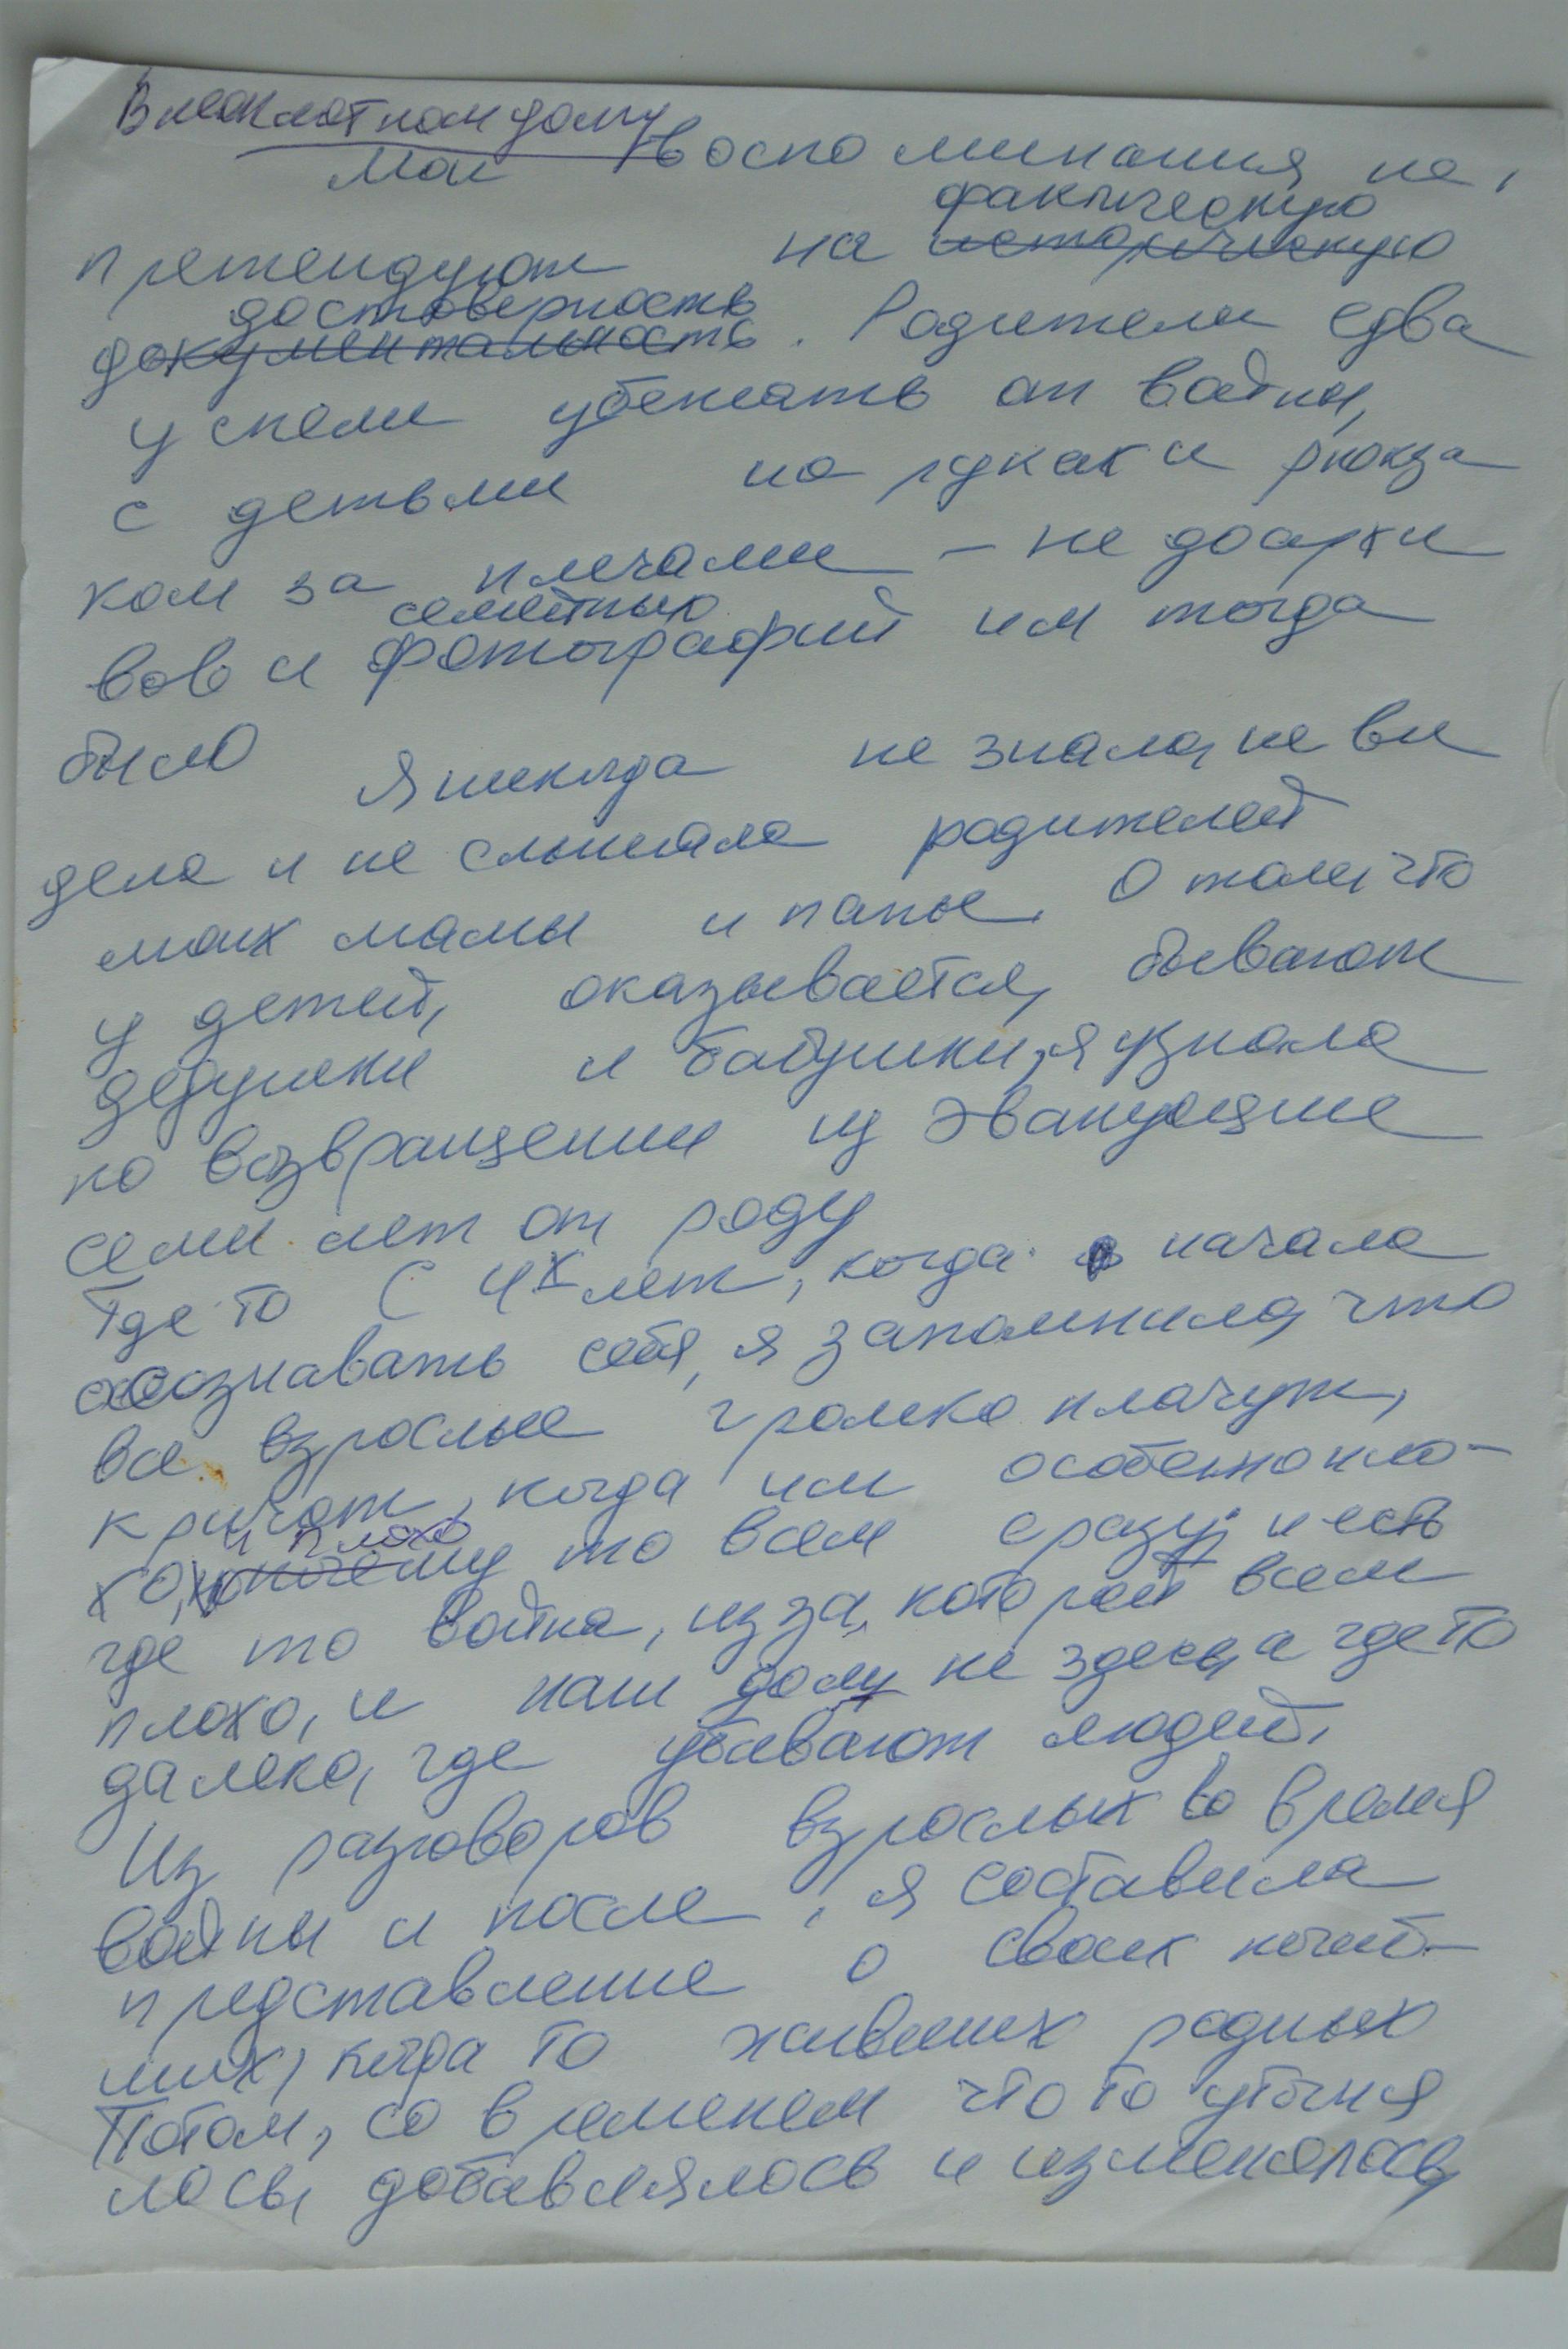 В неоплотном дому
Мои воспоминания не
фактическую
претендуют на историческую
достоверность
документальность. Родители едва
успели убежать от войны,
с детьми на руках и рюкза
ком за плечами – не до архи
семейных
вов и фотографий им тогда
было Я никогда не знала, не ви
дела и не слышала родителей
моих мамы и папы. О том, что
у детей, оказывается, бывают
дедушки и бабушки, я узнала
по возвращении из эвакуации
семи лет от роду
Где то с 4х лет, когда начала
осознавать себя, я запомнила, что
все взрослые громко плачут,
кричат, когда им особенно пло-
и плохо
хо, почему то всем сразу, и есть
где то война, из за которой всем
плохо, и наш дом не здесь, а где то
далеко, где убивают людей.
Из разговоров взрослых во время
войны и после, я составила
представление о своих погиб-
ших, когда то живших родных
Потом, со временем что то уточня
лось, добавлялось и изменялось,